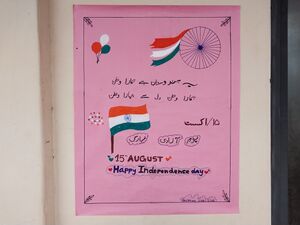 یہ ہندوستاں ہے ہمارا وطن
ہمارا وطن دل سے پیارا وطن
۱۵/اگست
آزادی مبارک
15 AUGUST
Happy Independence day